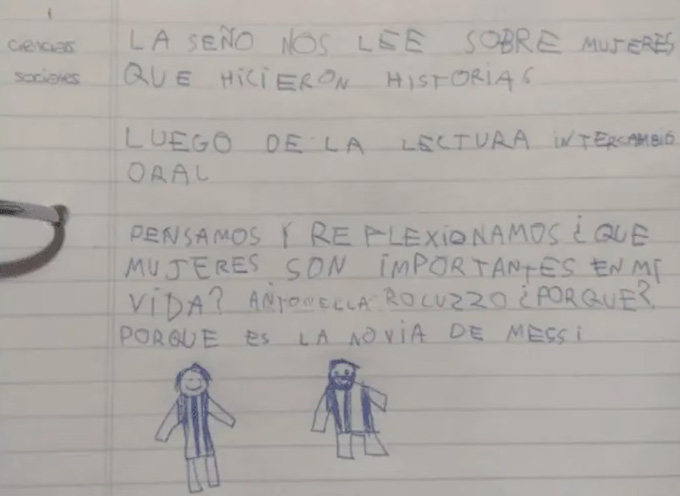 ciencias
sociales
LA SEÑO NOS LEE SOBRE MUJERES
QUE HICIERON HISTORIAS
LUEGO DE LA LECTURA INTERCAMBIO
ORAL
PENSAMOS Y REFLEXIONAMOS ¿QUE
MUJERES SON IMPORTANTES EN MI
VIDA? ANTONELLA ROCUZZO ¿PORQUE?
PORQUE ES LA NOVIA DE MESSI